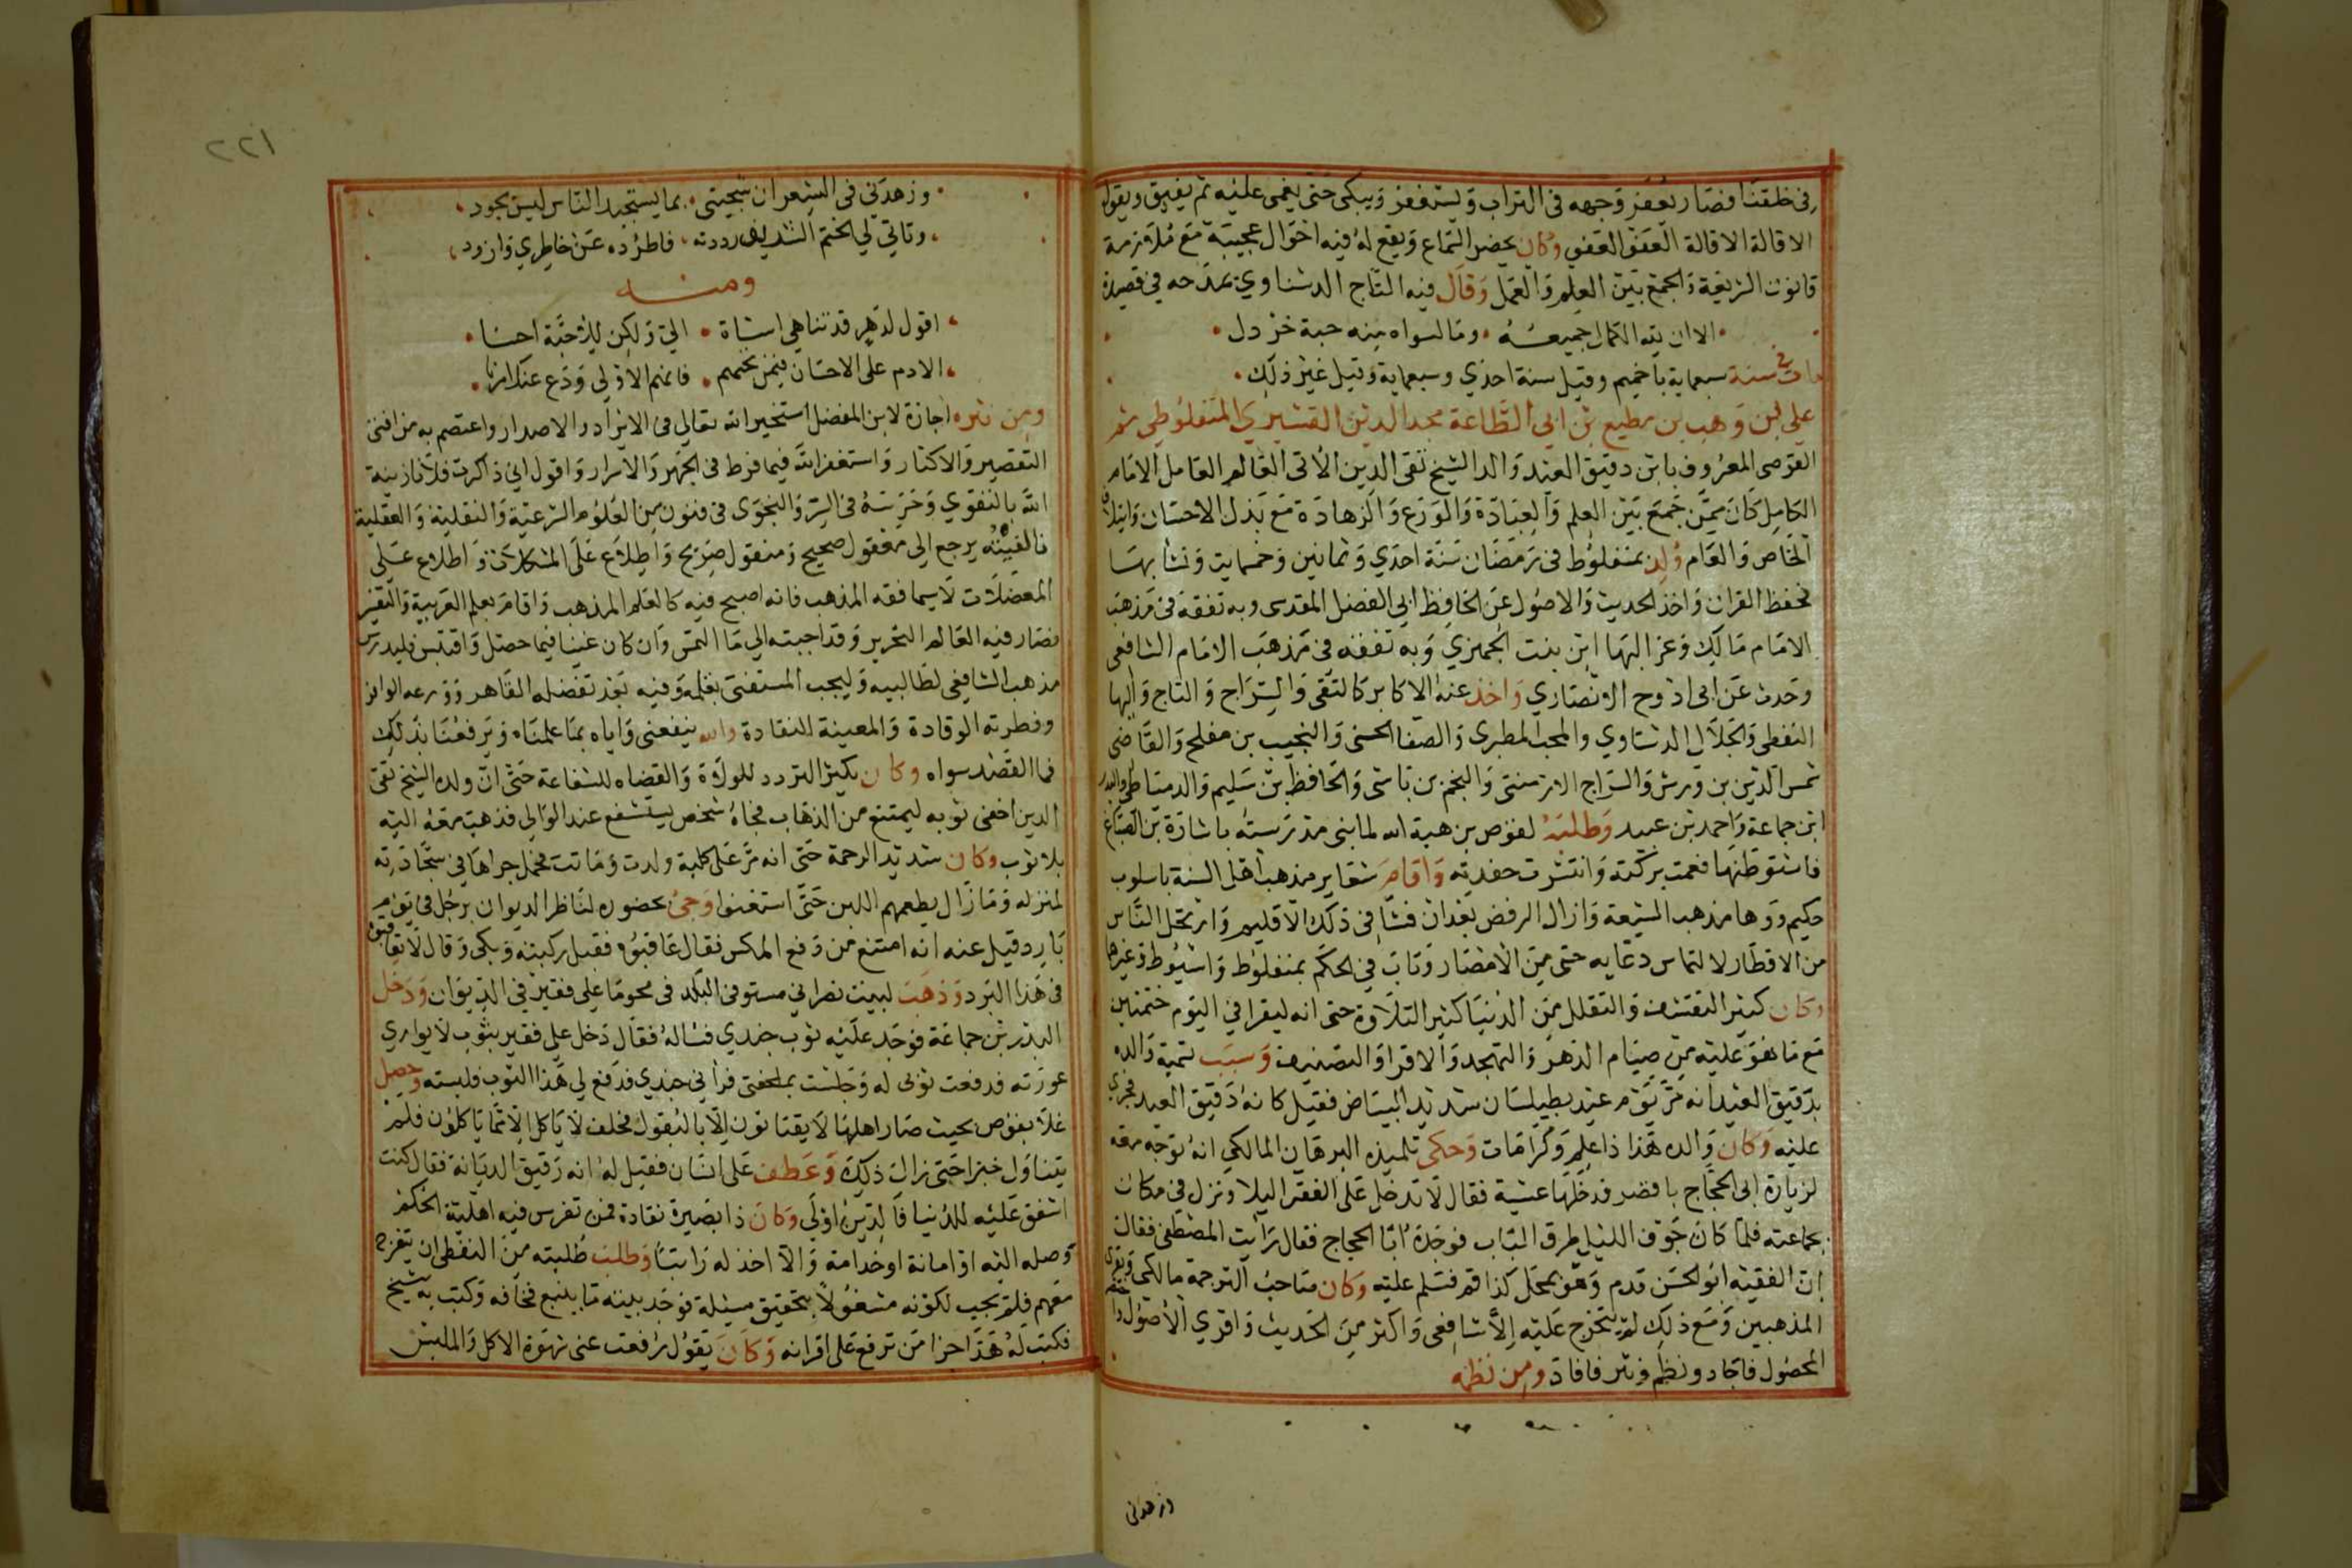 في خلقنا فصار يعفر وجهه في التراب ويستغفر ويبكي حتى يغمى عليه ثم يفيق ويقول
الاقالة الاقالة العفو العفو وكان يحضر السماع ويقع له فيه احوال عجيبة مع ملازمة
قانون الشريعة والجمع بين العلم والعمل وقال فيه التاج الدشناوي يمدحه في قصيدة
الا ان لله الكمال جميعه وما لسواه منه حبة خردل
مات في سنة سبعماية باخميم وقيل سنة احدي وسبعماية وقيل غير ذلك
علي بن وهب بن مطيع بن ابي الطاعة مجد الدين القشيري المنفلوطي ثم
القوصى المعروف بابن دقيق العيد والد الشيخ تقى الدين الاتى العالم العامل الامام
الكامل كان ممن جمع بين العلم والعبادة والورع والزهادة مع بذل الاحسان وايتلاف
الخاص والعام ولد بمنفلوط في رمضان سنة احدي وثمانين وخمسماية ونشا بها
فحفظ القران واخذ الحديث والاصول عن الحافظ ابي الفضل المقدسى وبه تفقه في مذهب
الامام مالك وعن البها ابن بنت الجميزي وبه تفقه في مذهب الامام الشافعى
وحدث عن ابى روح الانصاري واخذ عنه الاكابر كالتقى والسراج والتاج والبها
القفطى والجلال الدشناوي والمحب الطبرى والضيا الحسنى والنجيب بن مفلح والقاضى
شمس الدين بن والسراج الارمنتى والنجم بن ناشى والحافظ بن سليم والدمياطى والبدر
ابن جماعة واحمد بن عبيد وطلبه لقوص بن هبة الله لما بنى مدرسته باشارة بن الصباغ
فاستوطنها فعمت بركته وانتشرت حفدته واقام شعاير مذهب اهل السنة باسلوب
حكيم ووها مذهب الشيعة وازال الرفض بعد ان فشا في ذلك الاقليم وارتحل الناس
من الاقطار لالتماس دعايه حتى من الامصار وناب في الحكم بمنفلوط واسيوط وغيرها
وكان كثير التقشف والتقلل من الدنيا كثير التلاوة حتى انه ليقرا في اليوم ختمتين
مع ما هو عليه من صيام الدهر والتهجد والاقرا والتصنيف وسبب تسمية والده
بدقيق العيد انه مر يوم عيد بطيلسان شديد البياض فقيل كانه دقيق العيد فجري
عليه وكان والده هذا ذا علم وكرامات وحكى تلميذه البرهان المالكي انه توجه معه
لزيارة ابى الحجاج باقصر فدخلها عشية فقال لا ندخل على الفقرا ليلا ونزل في مكان
بجماعته فلما كان جوف الليل طرق الباب فوجده ابا الحجاج فقال رايت المصطفى فقال
ان الفقيه ابو الحسن قدم وهو بمحل كذا قم فسلم عليه وكان صاحب الترجمة مالكى ويقرى
المذهبين ومع ذلك لم يتخرج عليه الا شافعى واكثر من الحديث واقري الاصول
المحصول فاجاد ونظم ونثر فافاد ومن نظمه
وزهدنى
٢٢١
وزهدني في الشعر ان سجيتي بما يستجيد الناس ليس تجود
وتاتي لي الخيم الشريف رددته فاطرده عن خاطري واذود
ومنه
اقول لدهر قد تناهي اساة الي ولكن للاحبة احسنا
الا دم على الاحسان فيمن نحبهم فانهم الاولي ودع عنك امرنا
ومن نثره اجازة لابن المفضل استخير الله تعالي في الايراد والاصدار واعتصم به من افتى
التقصير والاكثار واستغفر الله فيما فرط في الجهر والاسرار واقول اني ذاكرت فلانا زينه
الله بالتقوي وحرسه في السر والنجوى في فنون من العلوم الشرعية والنقلية والعقلية
فالفيته يرجع الي معقول صحيح ومنقول صريح واطلاع على المشكلات واطلاع على
المعضلات لا سيما فقه المذهب فانه اصبح فيه كالعلم المذهب واقام بعلم العربية والتفسير
فصار فيه العالم النحرير وقد اجبته الي ما التمس وان كان غنيا فيما حصل واقتبس فليدرس
مذهب الشافعي لطالبيه وليجب المستفتى بقلمه وفيه بعد تفضله القاهر وورعه الوافر
وفطرته الوقادة والمعينة النقادة والله ينفعنى واياه بما علمناه ويرفعنا بذلك
فما القصد سواه وكان يكثر التردد للولاة والقضاه للشفاعة حتى ان ولده الشيخ تقى
الدين اخفى ثوبه ليمتنع من الذهاب فجاه شخص يستشفع عند الوالى فذهب معه اليه
بلا ثوب وكان شديد الرحمة حتى انه مر على كلبة ولدت وماتت فحمل جراها في سجادته
لمنزله وما زال يطعمهم اللبن حتى استغنوا وجئ بحضوره لناظر الديوان برجل في يوم
بارد قيل عنه انه امتنع من دفع المكس فقال عاقبوه فقبل ركبته وبكى وقال لا تعاقبوه
في هذا البرد وذهب لبيت نصراني مستوفى البلد في محوما علي فقير في الديوان ودخل
البدر بن جماعة فوجد عليه ثوب جندي فساله فقال دخل علي فقير بثوب لا يواري
عورته فدفعت ثوبى له وجلست بملحفتى فراني جندي فدفع لي هذا الثوب فلبسته وحصل
غلا بقوص بحيث صار اهلها لا يقتاتون الا بالبقول فحلف لا ياكل الا مما ياكلون فلم
يتناول خبزا حتى زال ذلك وعطف على انسان فقيل له انه رقيق الديانة فقال كنت
اشفق عليه للدنيا فالدين اولى وكان ذا بصيرة نقادة فمن تفرس فيه اهلية الحكم
وصله اليه او امانة او خدامة والا اخذ له راتبا وطلب طلبته من القفطى ان يتفرج
معهم فلم يجب لكونه مشغولا بتحقيق مسئلة فوجد بيته ما ينبع فخافه وكتب به شيخ
فكتب له هذا جزا من ترفع على اقرانه وكان يقول رفعت عنى شهوة الاكل والملبس